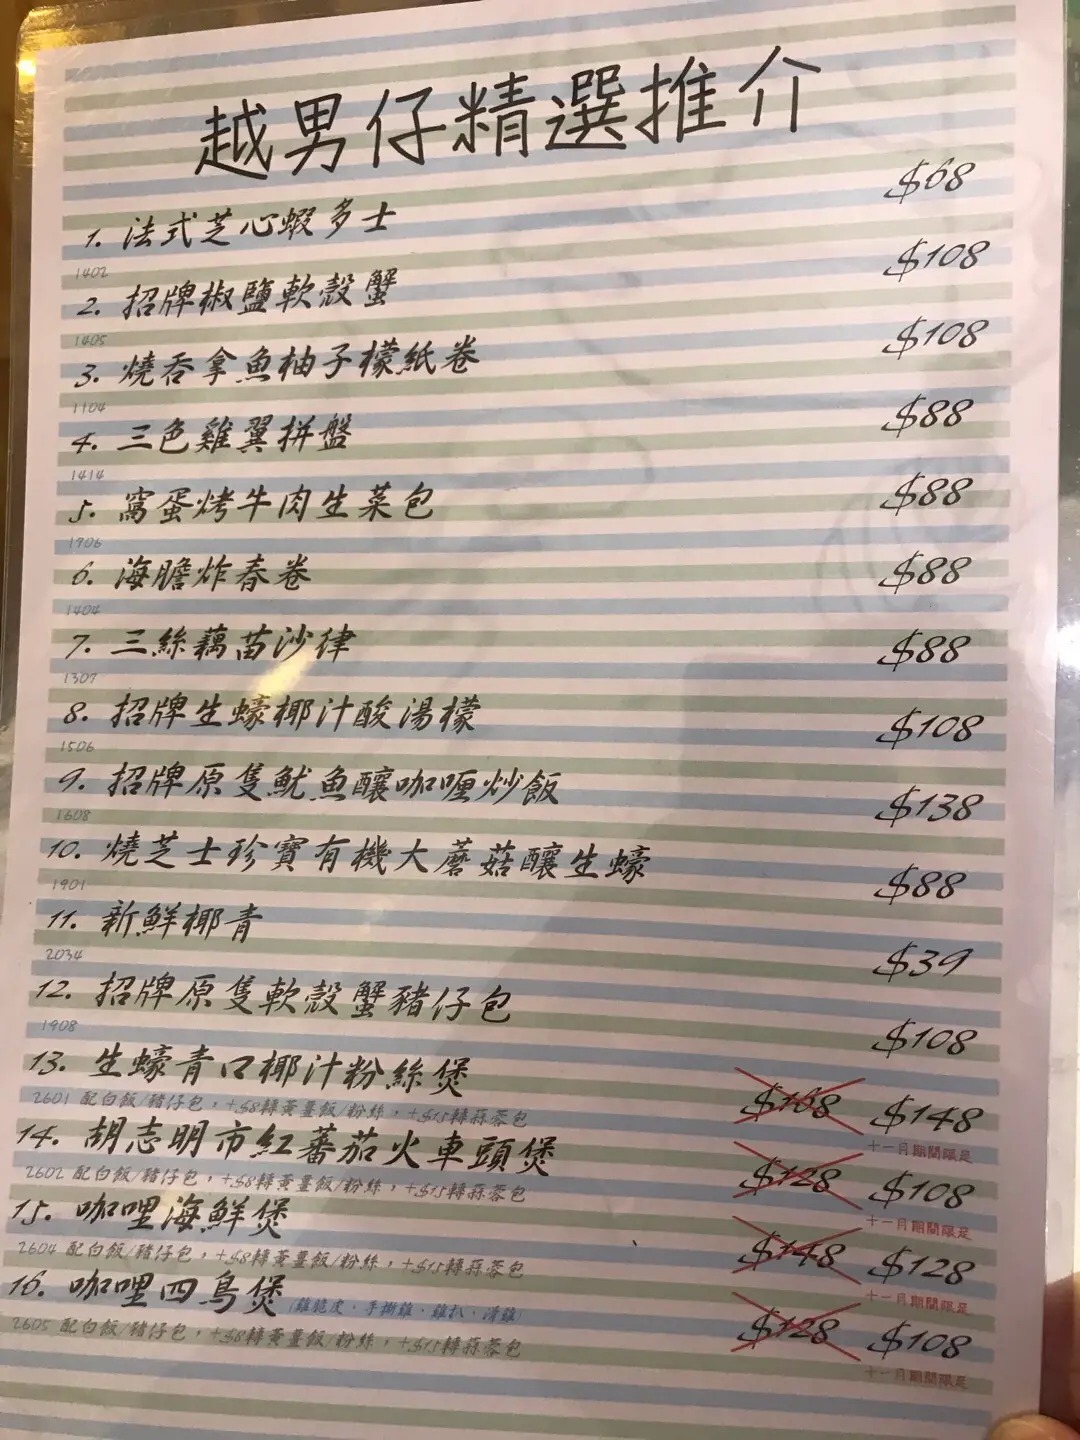 越男仔精選推介
1. 法式芝心蝦多士 $68
1402
2. 招牌椒鹽軟殼蟹 $108
1405
3. 燒吞拿魚柚子檬紙卷 $108
1104
4. 三色雞翼拼盤 $88
1414
5. 窩蛋烤牛肉生菜包 $88
1706
6. 海膽炸春卷 $88
1404
7. 三絲藕苗沙律 $88
1307
8. 招牌生蠔椰汁酸湯檬 $108
1506
9. 招牌原隻魷魚釀咖喱炒飯 $138
1608
10. 燒芝士珍寶有機大蘑菇釀生蠔 $88
1901
11. 新鮮椰青 $39
2034
12. 招牌原隻軟殼蟹豬仔包 $108
1908
13. 生蠔青口椰汁粉絲煲 $168 $148
2601 配白飯/豬仔包，+$8轉黃薑飯/粉絲，+$15轉蒜蓉包 十一月期間限定
14. 胡志明市紅蕃茄火車頭煲 $128 $108
2602 配白飯/豬仔包，+$8轉黃薑飯/粉絲，+$15轉蒜蓉包 十一月期間限定
15. 咖哩海鮮煲 $148 $128
2604 配白飯/豬仔包，+$8轉黃薑飯/粉絲，+$15轉蒜蓉包 十一月期間限定
16. 咖哩四鳥煲(雞脆皮．手撕雞．雞扒．滑雞) $128 $108
2605 配白飯/豬仔包，+$8轉黃薑飯/粉絲，+$15轉蒜蓉包 十一月期間限定